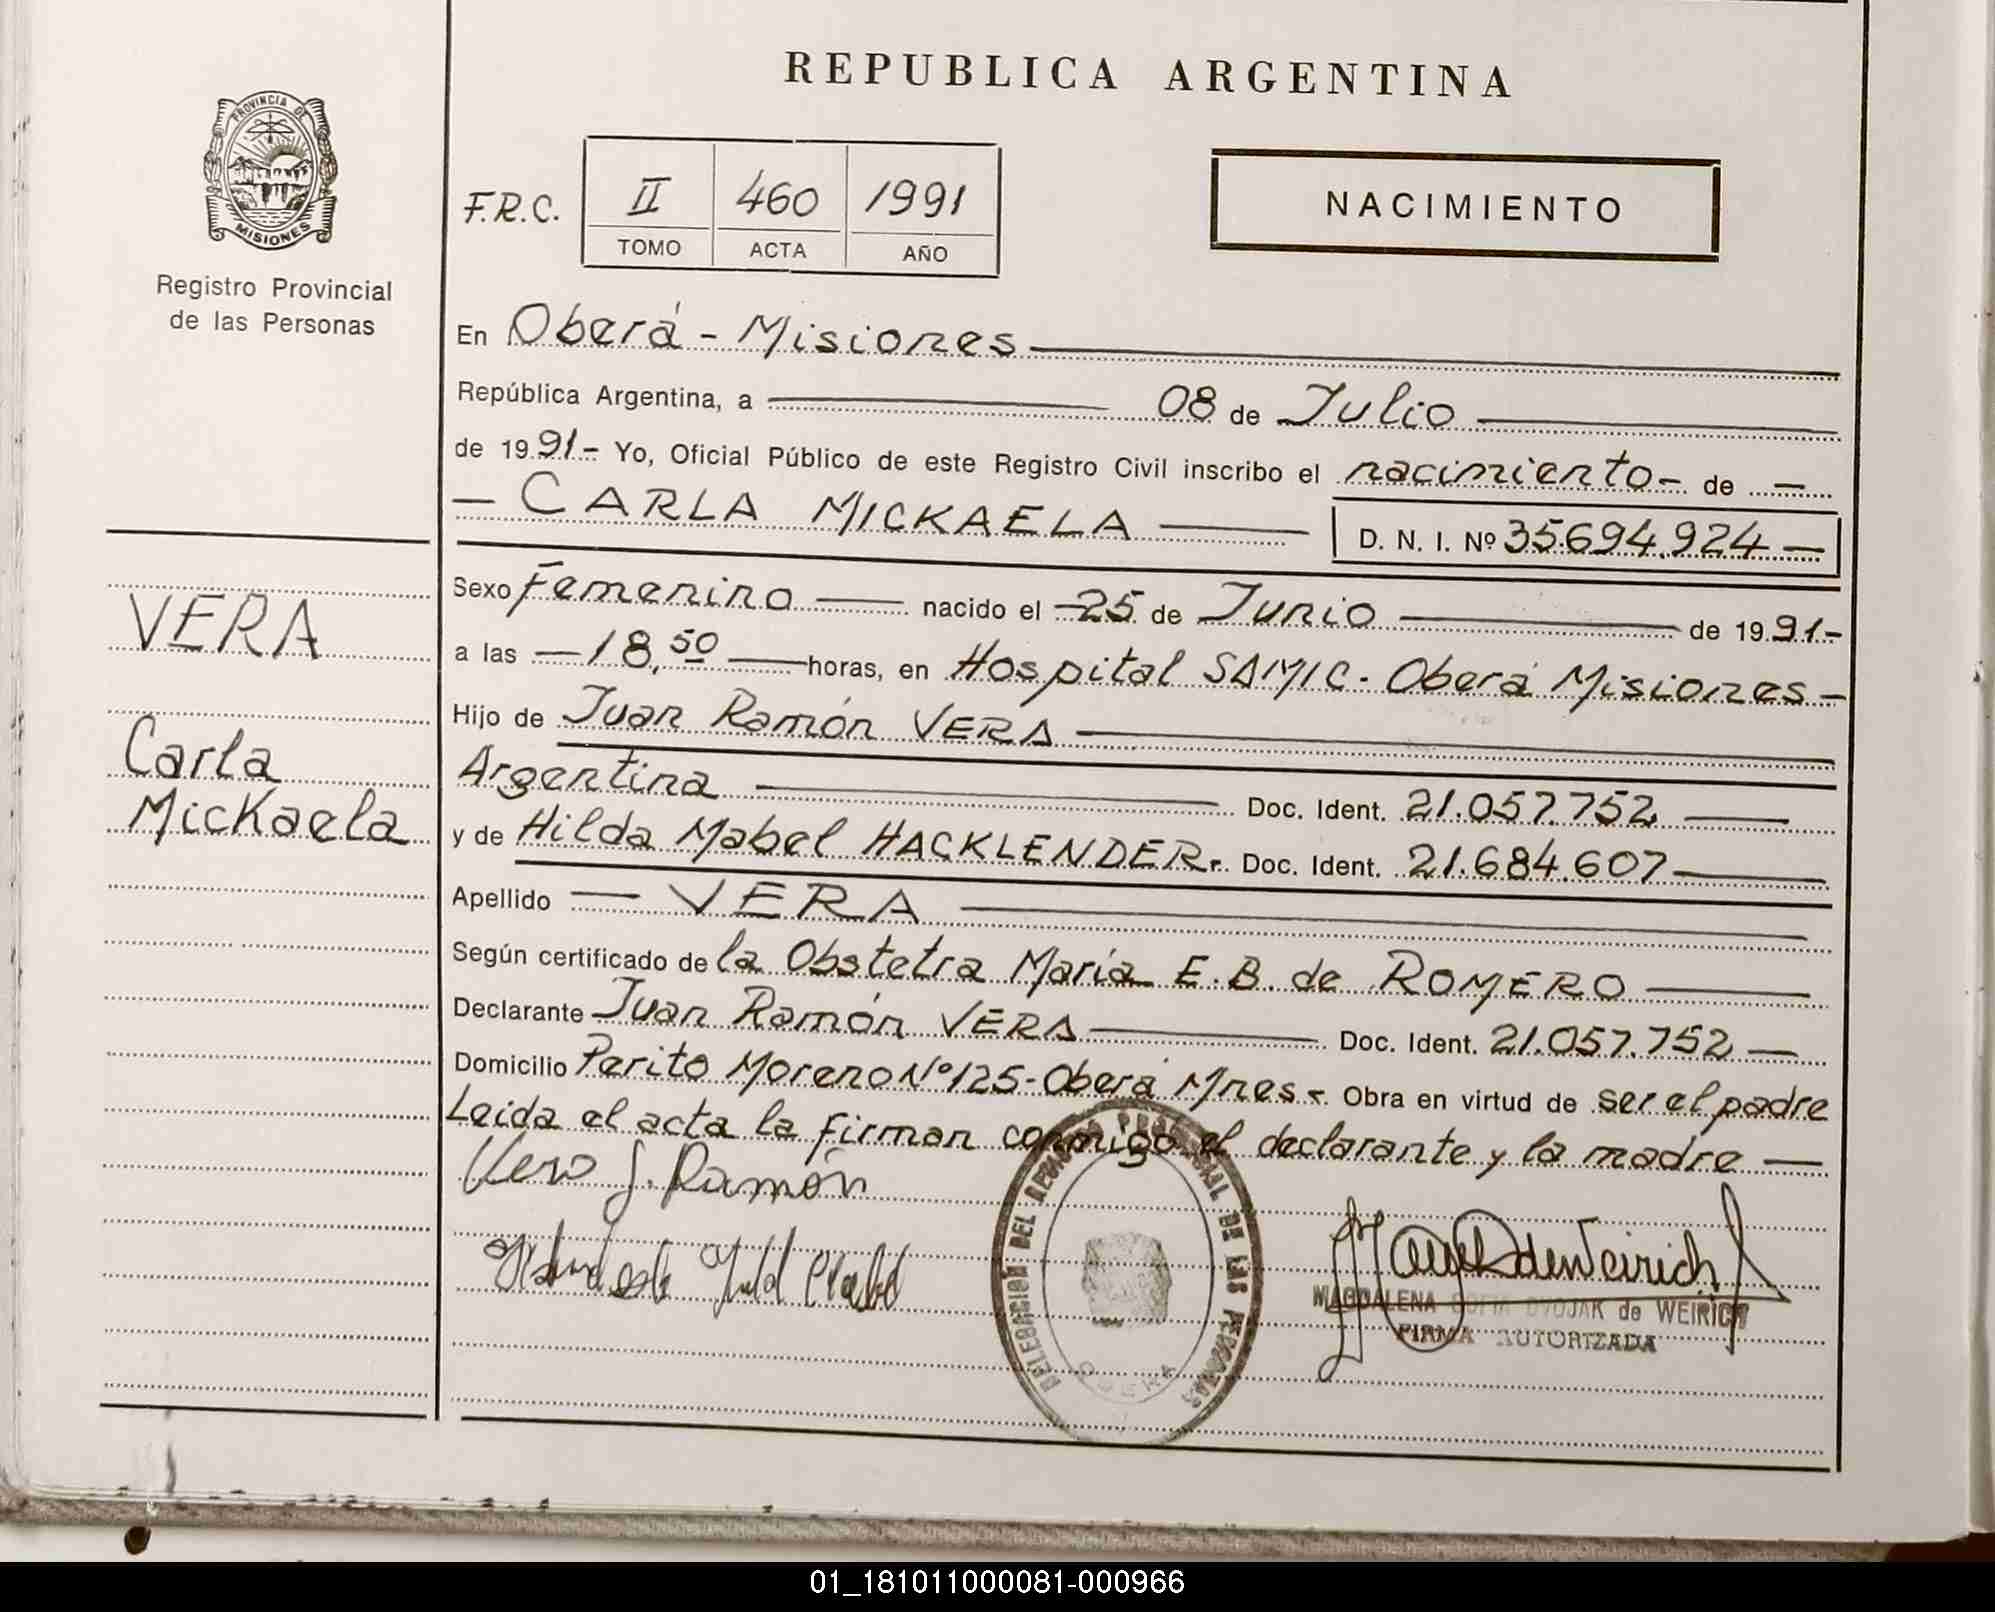 REPUBLICA ARGENTINA
PROVINCIA DE
MISIONES
Registro Provincial
de las Personas
F.R.C.
II 460 1991
TOMO ACTA AÑO
NACIMIENTO
En Oberá - Misiones
República Argentina, a 08 de Julio
de 1991- Yo, Oficial Público de este Registro Civil inscribo el nacimiento- de —
— CARLA MICKAELA — D. N. I. Nº 35.694.924 —
VERA
Carla
Mickaela
Sexo Femenino — nacido el -25 de Junio — de 1991-
a las — 18,50 — horas, en Hospital SAMIC - Oberá Misiones -
Hijo de Juan Ramón VERA —
Argentina — Doc. Ident. 21.057.752 —
y de Hilda Mabel HACKLENDER.- Doc. Ident. 21.684.607 —
Apellido — VERA —
Según certificado de la Obstetra María E. B. de ROMERO —
Declarante Juan Ramón VERA — Doc. Ident. 21.057.752 —
Domicilio Perito Moreno Nº 125 - Oberá Mnes - Obra en virtud de ser el padre
Leida el acta la firman conmigo el declarante y la madre —
Vera J. Ramón
DELEGACION DEL REGISTRO PROVINCIAL DE LAS PERSONAS
OBERA
MAGDALENA SOFIA DVOJAK de WEIRICH
FIRMA AUTORIZADA
01_181011000081-000966